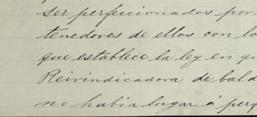 ser perfeccionados por
tenedores de ellos con la
que establece la ley en qu
Reivindicadora de bald
no habia lugar á perf